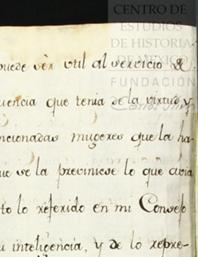 CENTRO DE
ESTUDIOS
DE HISTORIA
FUNDACIÓN
puede ser util al servicio de
uencia que tenia de la virtud, y
ncionadas mugeres que la ha-
ue se la previniese lo que avia
to lo referido en mi Consejo
u inteligencia, y de lo repre-